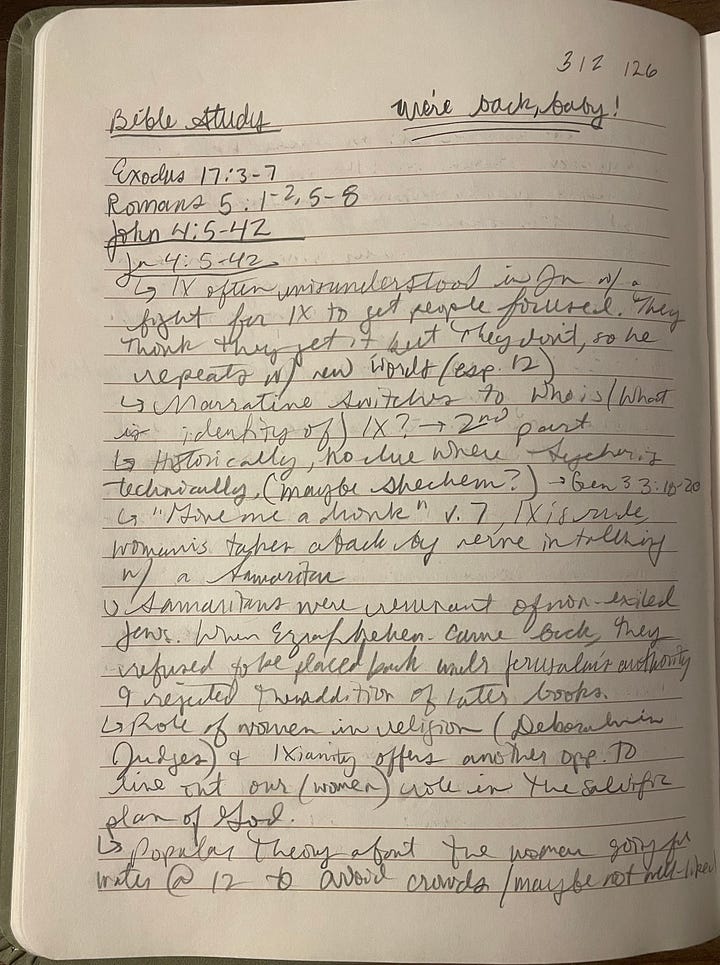 312 126
Bible Study We're back, baby!
Exodus 17:3-7
Romans 5:1-2, 5-8
John 4:5-42
Jn 4:5-42
↳ IX often misunderstood in Jn w/ a
fight for IX to get people focused. They
think they get it but they don't, so he
repeats w/ new words (esp. 12)
↳ Narrative switches to who is/(what
is identity of) IX? → 2nd part
↳ Historically, no clue where Sychar is
technically, (maybe Shechem?) → Gen 33:18-20
↳ "Give me a drink" v. 7, IX is rude,
woman is taken aback by nerve in talking
w/ a Samaritan
↳ Samaritans were remnant of non-exiled
Jews. When Ezra/Nehem. came back, they
refused to be placed back under Jerusalem's authority
& rejected the addition of later books.
↳ Role of women in religion (Deborah in
Judges) & IXianity offers another opp. to
live out our (women) role in the salvific
plan of God.
↳ Popular theory about the woman going for
water @ 12 to avoid crowds (maybe not well-liked